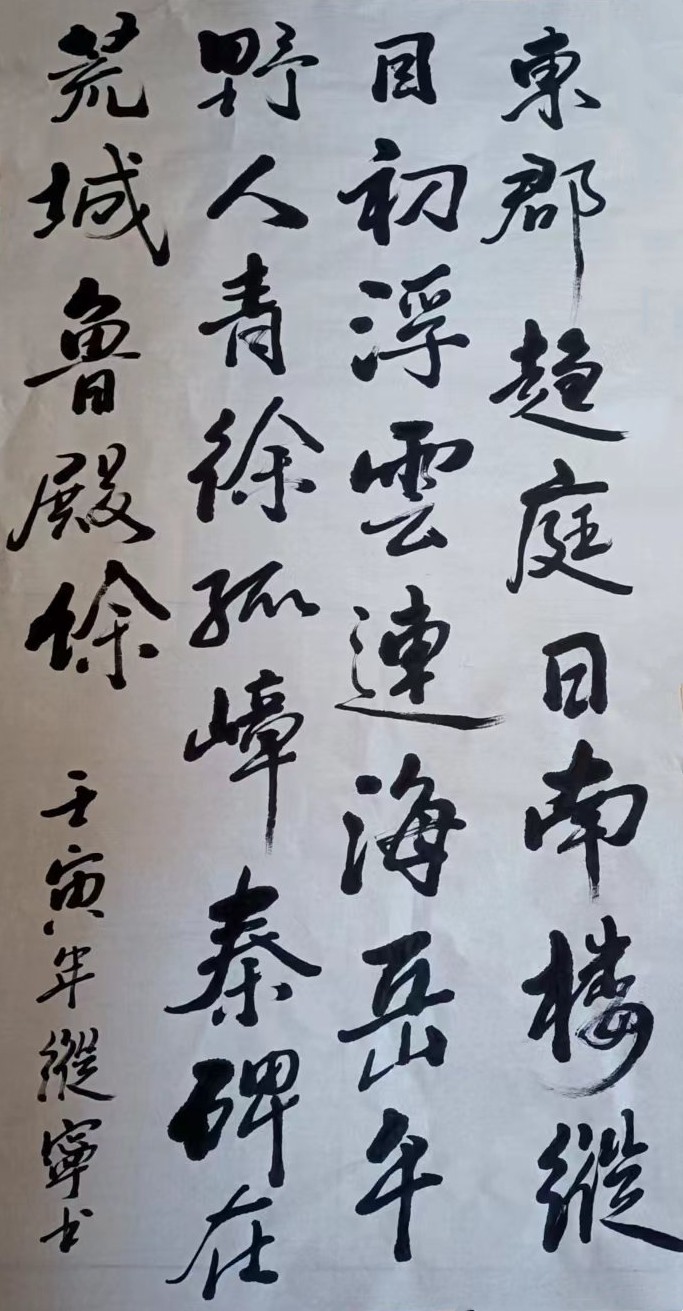 東郡趨庭日南楼縱
目初浮雲連海岳平
野入青徐孤嶂秦碑在
荒城魯殿餘
壬寅年縱寧书